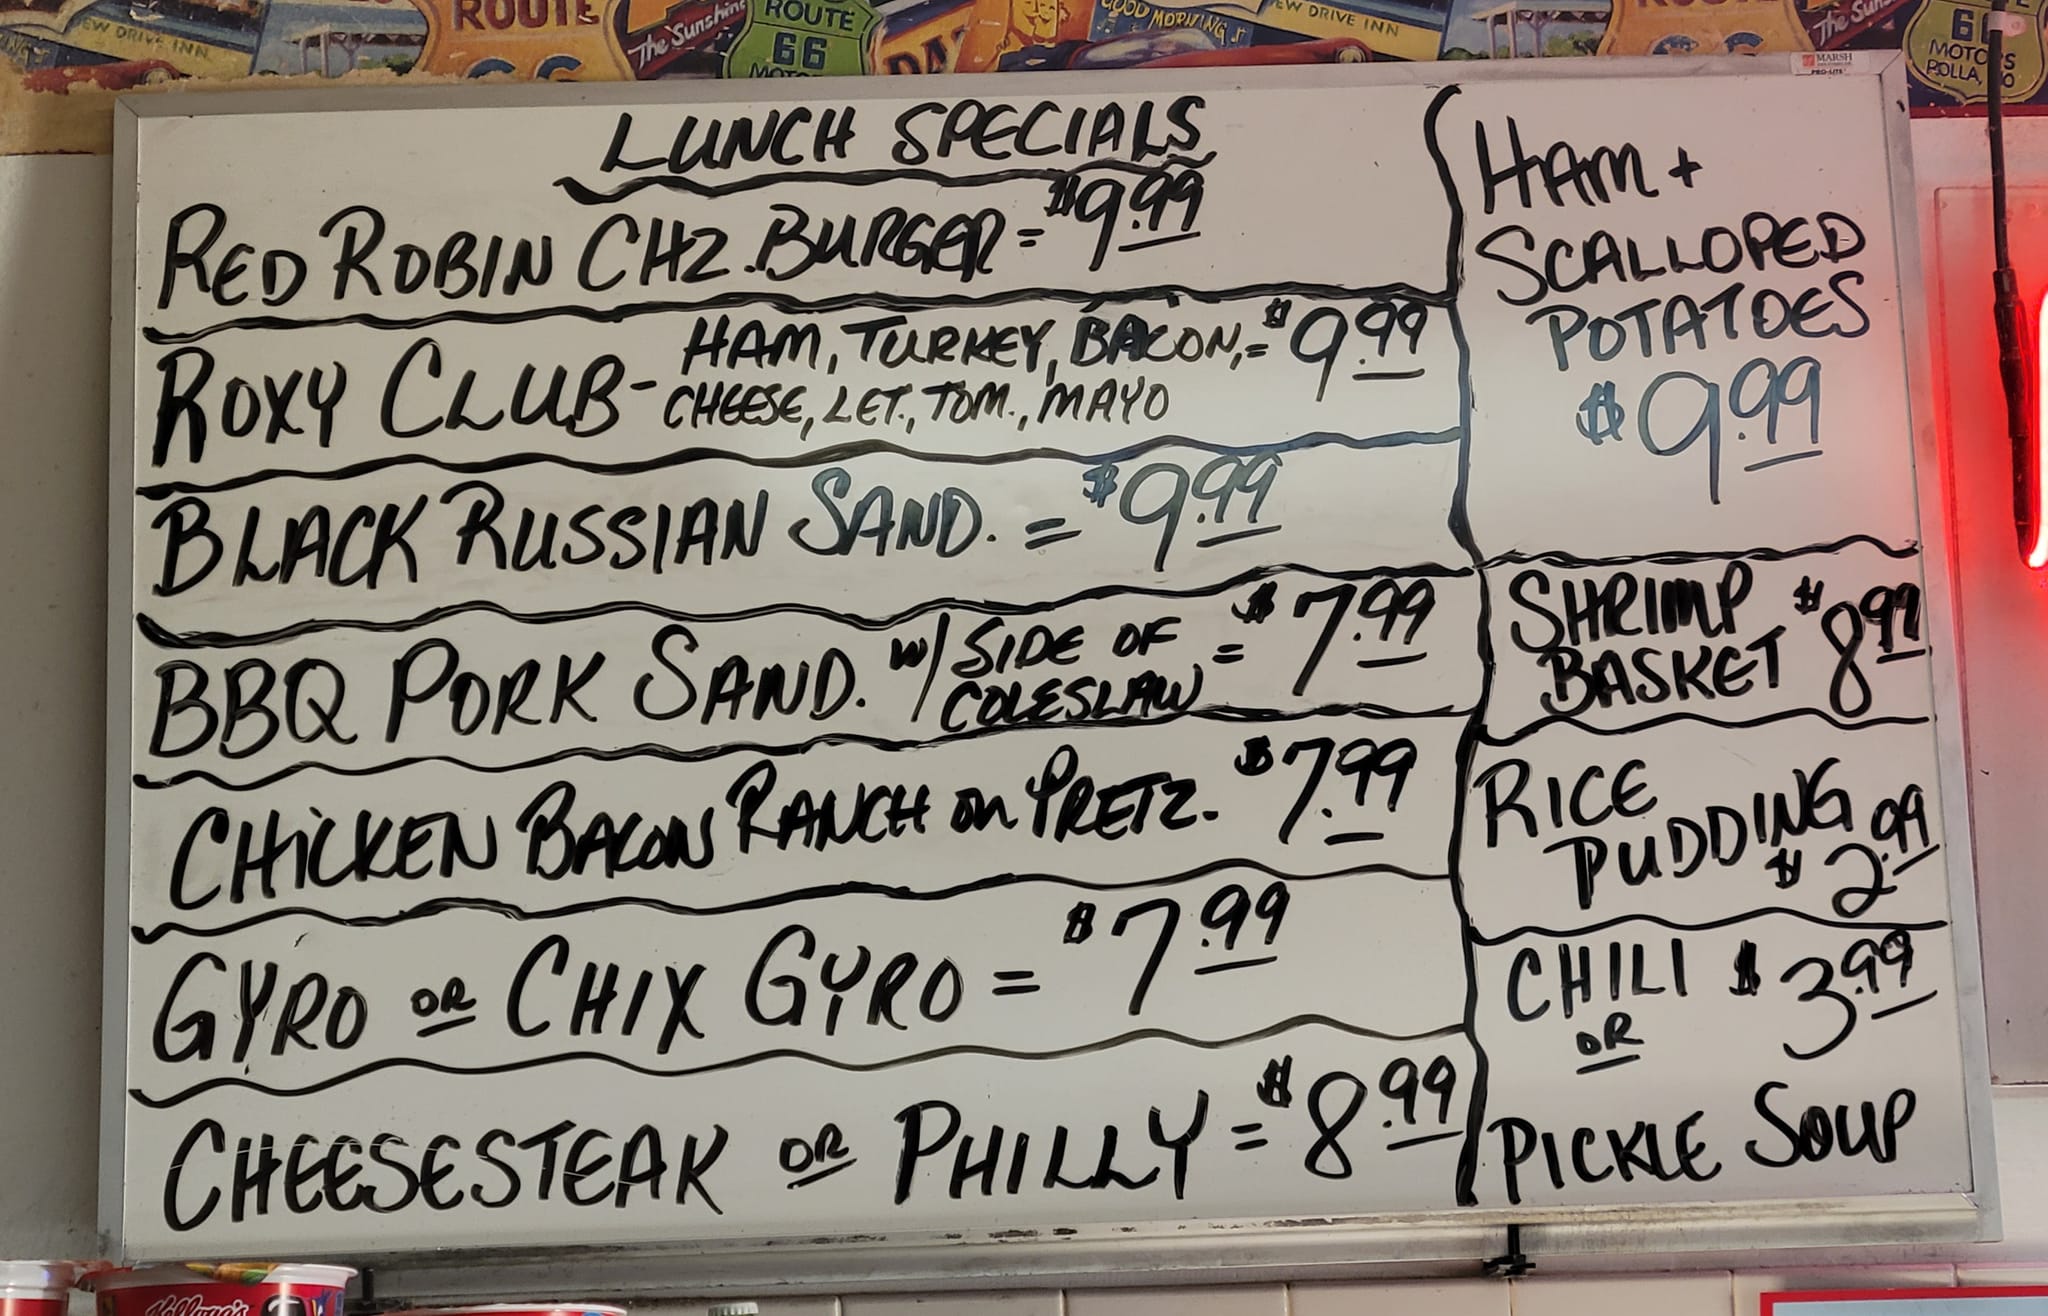 ROUTE
66
EW DRIVE INN
The Sunshine
ROUTE
66
MOTO
GOOD MORNING
EW DRIVE INN
66
MOTORS
ROLLA, MO
MARSH
PRO-LITE
LUNCH SPECIALS
RED ROBIN CHZ. BURGER = $9.99
ROXY CLUB - HAM, TURKEY, BACON, = $9.99
CHEESE, LET., TOM., MAYO
BLACK RUSSIAN SAND. = $9.99
BBQ PORK SAND. W/ SIDE OF = $7.99
COLESLAW
CHICKEN BACON RANCH on PRETZ. $7.99
GYRO OR CHIX GYRO = $7.99
CHEESESTEAK OR PHILLY = $8.99
HAM +
SCALLOPED
POTATOES
$9.99
SHRIMP $8.99
BASKET
RICE
PUDDING
$2.99
CHILI $3.99
OR
PICKLE SOUP
Kellogg's